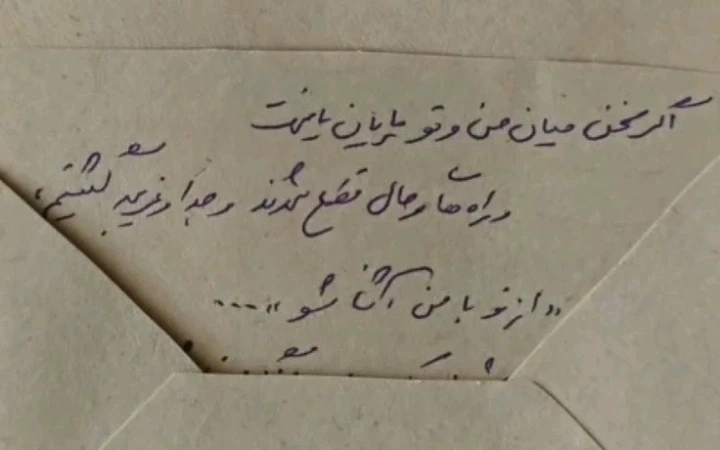 اگر سخن میان من و تو پایان یافت
و راه‌های وصال قطع شدند و جدا و غریب گشتیم،
«از نو با من آشنا شو»....